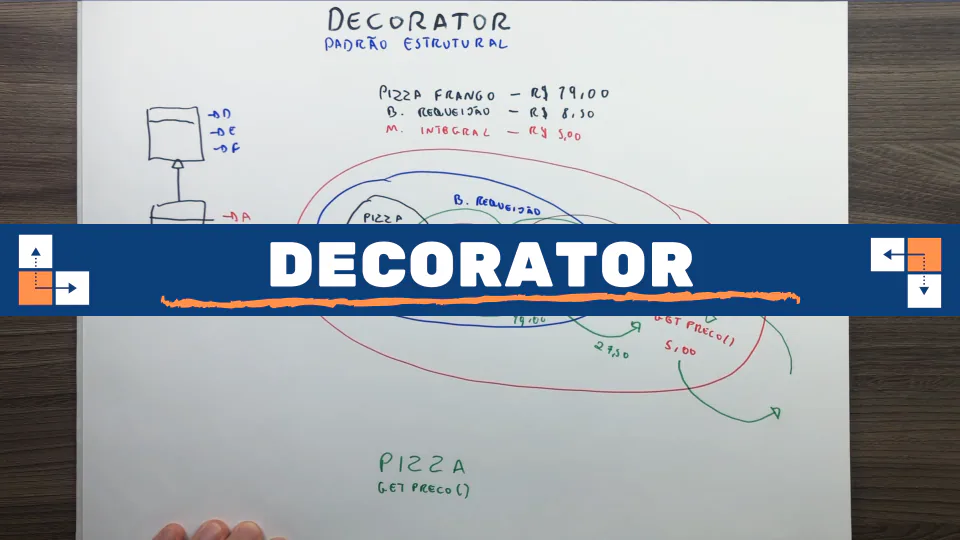 DECORATOR
PADRÃO ESTRUTURAL
PIZZA FRANGO - R$ 19,00
B. REQUEIJÃO - R$ 8,50
M. INTEGRAL - R$ 5,00
D
E
F
B. REQUEIJÃO
PIZZA
A
DECORATOR
19,00
GET PRECO()
27,50
5,00
PIZZA
GET PRECO()